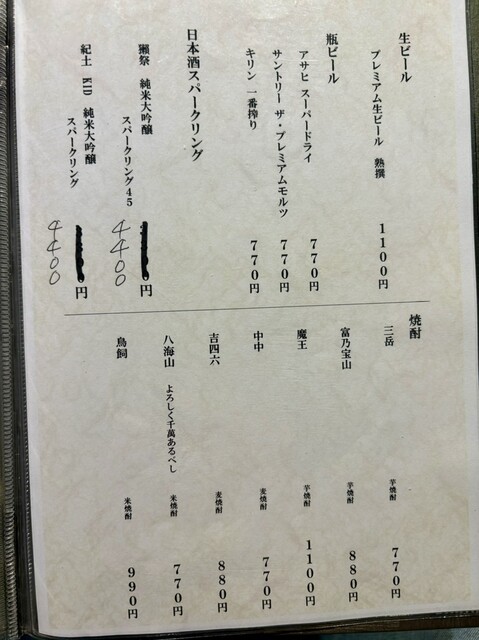 生ビール
プレミアム生ビール 熟撰 1100円
瓶ビール
アサヒ スーパードライ 770円
サントリー ザ・プレミアムモルツ 770円
キリン 一番搾り 770円
日本酒スパークリング
獺祭 純米大吟醸
スパークリング45 円
4400
紀土 KID 純米大吟醸
スパークリング 円
4400
焼酎
三岳 芋焼酎 770円
富乃宝山 芋焼酎 880円
魔王 芋焼酎 1100円
中中 麦焼酎 770円
吉四六 麦焼酎 880円
八海山 よろしく千萬あるべし 米焼酎 770円
鳥飼 米焼酎 990円